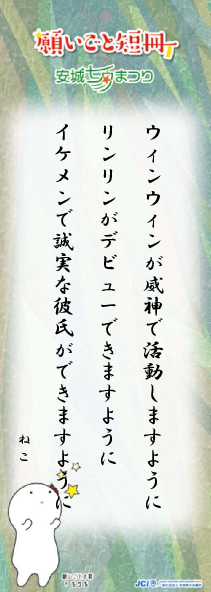 願いごと短冊
安城七夕まつり
ウィンウィンが威神で活動しますように
リンリンがデビューできますように
イケメンで誠実な彼氏ができますように
ねこ
JCI